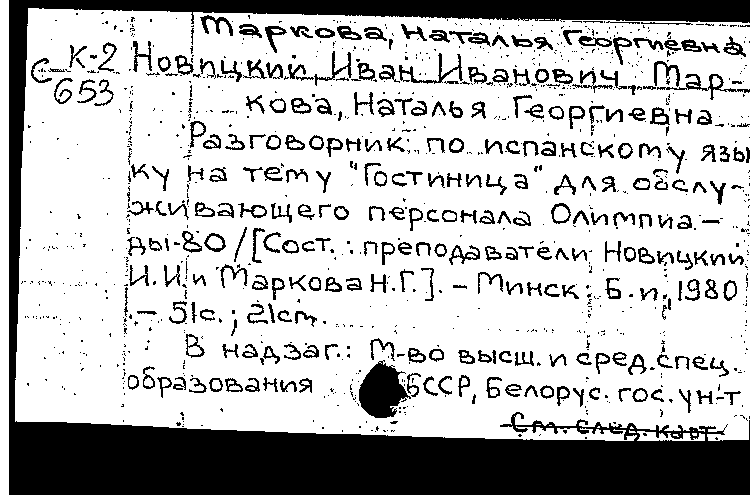 Маркова, Наталья Георгиевна
С К-2 Новицкий, Иван Иванович, Мар-
653 кова, Наталья Георгиевна
Разговорник по испанскому язы
ку на тему "Гостиница" для обслу-
живающего персонала Олимпиа-
ды-80 / [Сост.: преподаватели Новицкий
И.И. и Маркова Н.Г.]. - Минск: Б. и., 1980
. - 51с.; 21см.
В надзаг.: М-во высш. и сред. спец.
образования БССР, Белорус. гос. ун-т
См. след. карт.